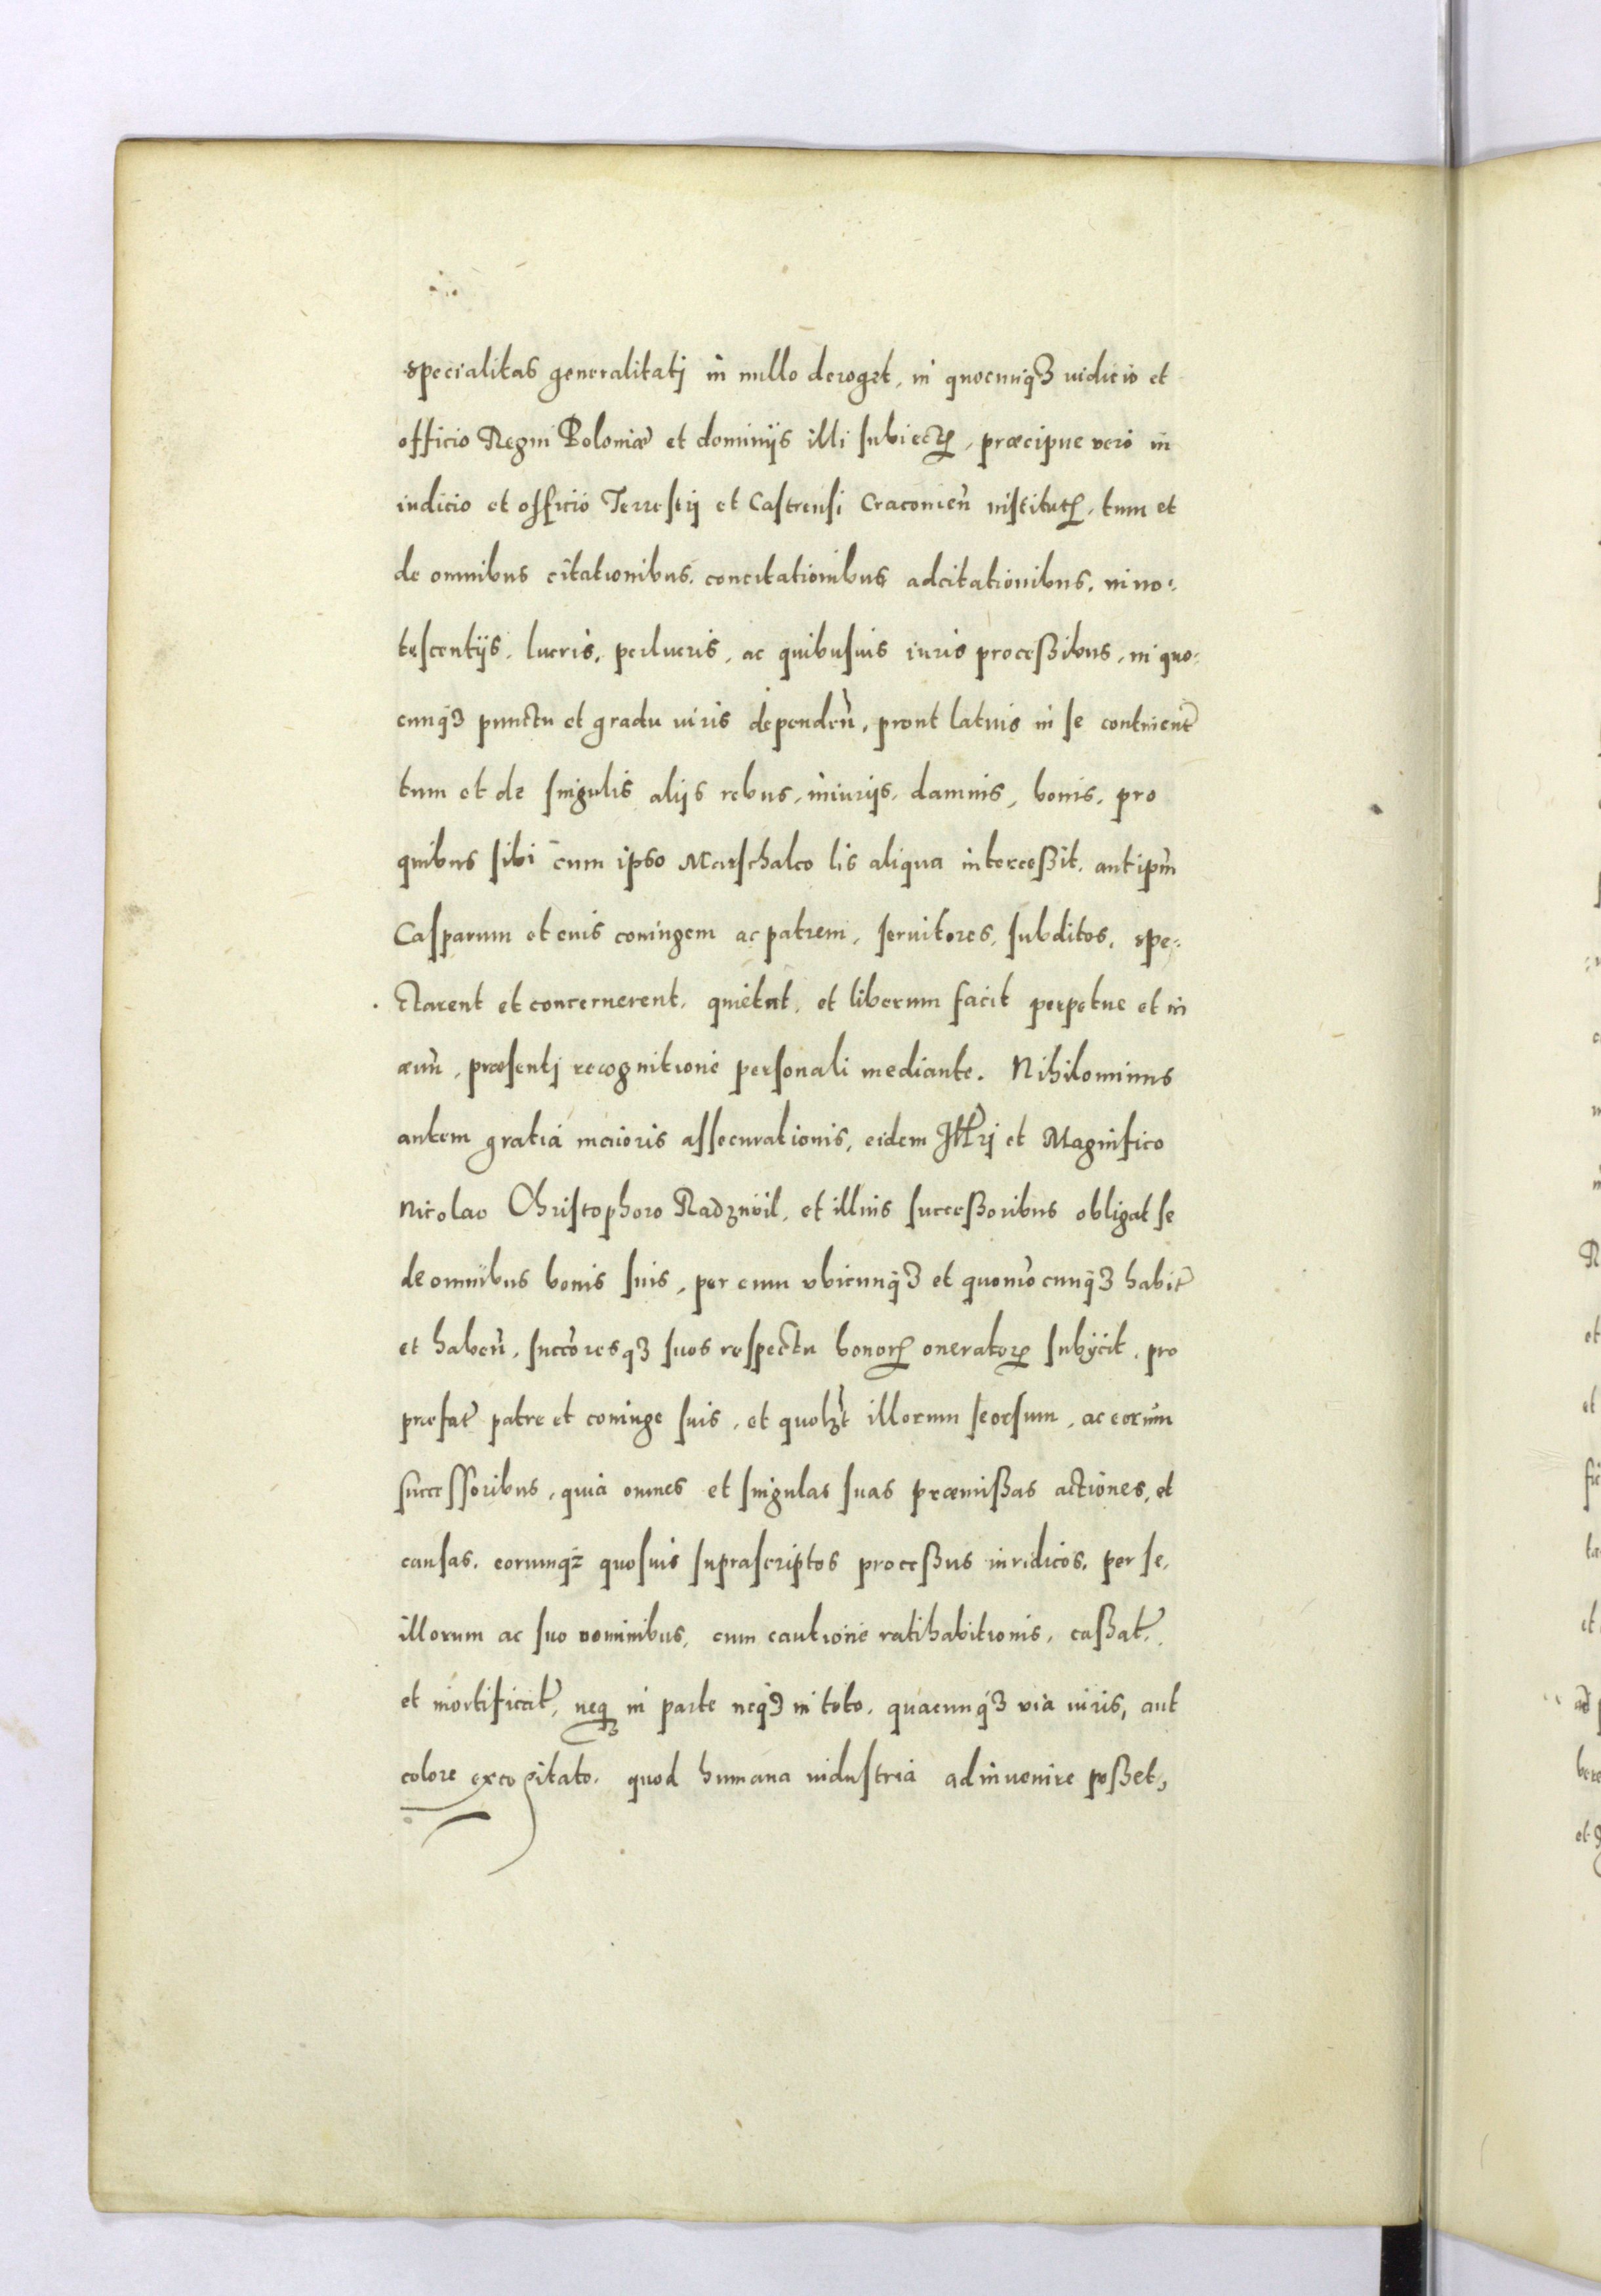 specialitas generalitatj in nullo deroget, in quocunq3 iudicio et
officio Regni Poloniæ et dominijs illi subiectꝝ, præcipue vero in
iudicio et officio Terrestrj et Castrensi Cracovieñ institutꝝ, tum et
de omnibus citationibus, concitationibus adcitationibus, inno:
tescentijs, lucris, perlucris, ac quibusuis iuris proceßibus, in quo:
cunq3 punctu et gradu iuris dependeñ, prout latius in se continent~
tum et de singulis alijs rebus, iniurijs, damnis, bonis, pro
quibus sibi cum ipso Marschalco lis aliqua interceßit, aut ipm̃
Casparum et eius coniugem ac patrem, seruitores, subditos, spe:
ctarent et concernerent, quietat, et liberum facit perpetue et in
æuũ, præsentj recognitione personali mediante. Nihilominus
autem gratia maioris assecurationis, eidem Illr̃j et Magnifico
Nicolao Christophoro Radzivil, et illius succeßoribus obligat se
de omnibus bonis suis, per eum vbicunq3 et quomõcunq3 habit~
et habeñ, succõresq3 suos respectu bonorꝝ oneratorꝝ subijcit, pro
præfat~ patre et coniuge suis, et quolz̃t illorum seorsum, ac eorum
successoribus, quia omnes et singulas suas præmißas actiones, et
causas, eorumq3 quosuis suprascriptos proceßus iuridicos, per se,
illorum ac suo nominibus, cum cautione ratihabitionis, caßat~,
et mortificat~, neq3 in parte neq3 in toto, quacunq3 via iuris, aut
colore excogitato, quod humana industria adinuenire poßet,